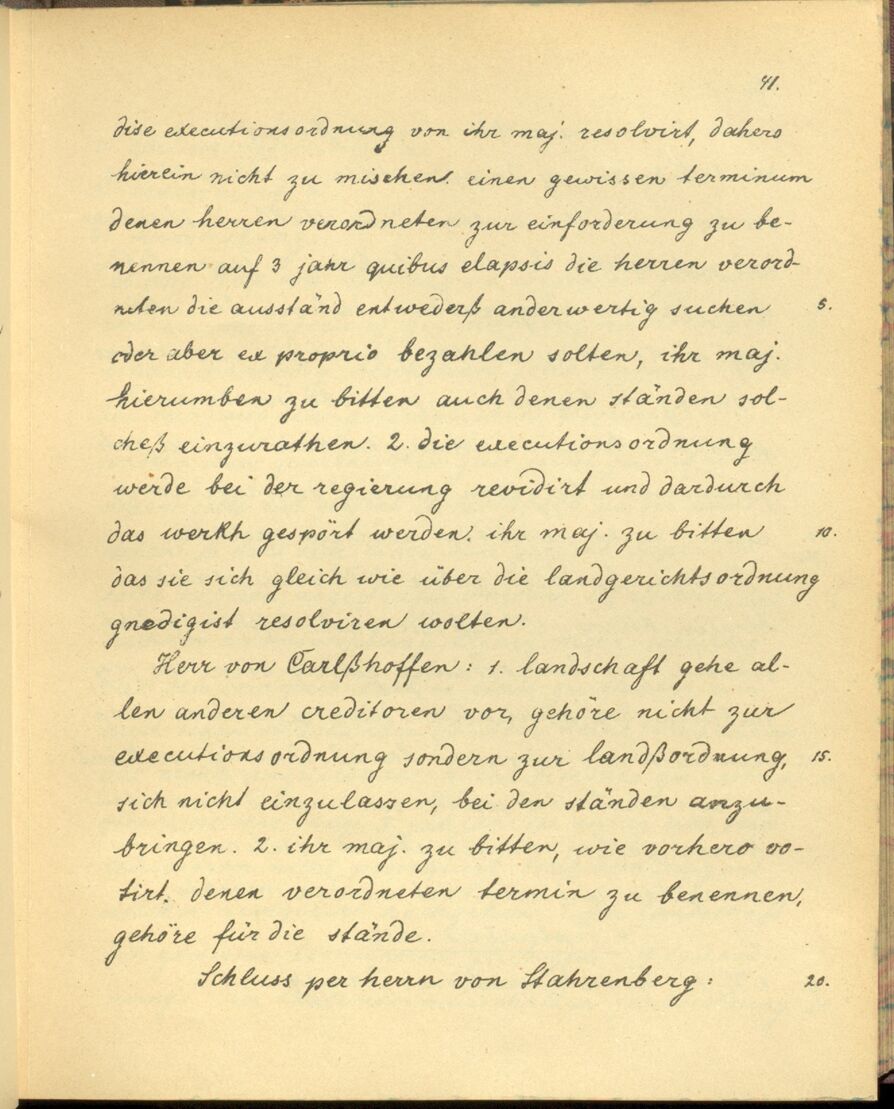 41.
dise executionsordnung von ihr maj. resolvirt, dahero
hierein nicht zu mischen. einen gewissen terminum
denen herren verordneten zur einforderung zu be-
nennen auf 3 jahr quibus elapsis die herren verord-
neten die ausständ entwederß anderwertig suchen 5.
oder aber ex proprio bezahlen solten, ihr maj.
hierumben zu bitten auch denen ständen sol-
cheß einzurathen. 2. die executionsordnung
werde bei der regierung revidirt und dardurch
das werkh gespört werden. ihr maj. zu bitten 10.
das sie sich gleich wie über die landgerichtsordnung
gnedigist resolviren wolten.
Herr von Carlßhoffen: 1. landschaft gehe al-
len anderen creditoren vor, gehöre nicht zur
executionsordnung sondern zur landßordnung, 15.
sich nicht einzulassen, bei den ständen anzu-
bringen. 2. ihr maj. zu bitten, wie vorhero vo-
tirt. denen verordneten termin zu benennen,
gehöre für die stände.
Schluss per herrn von Stahrenberg: 20.